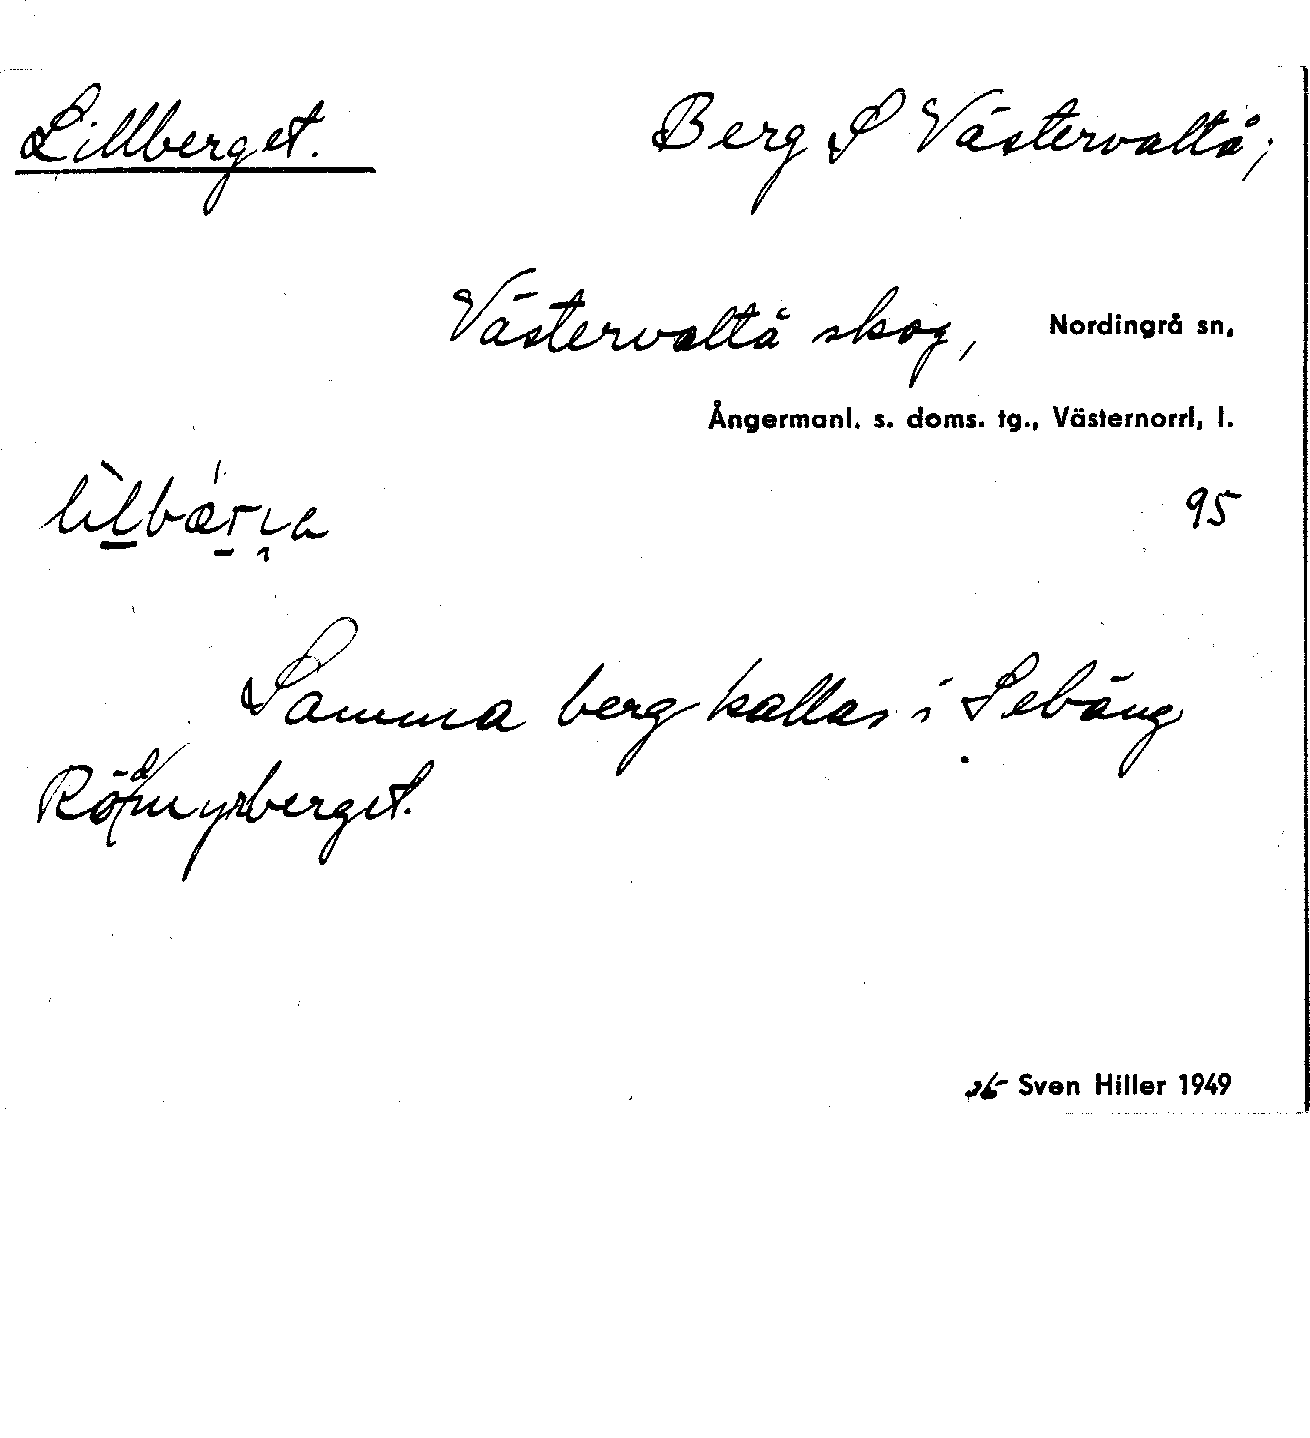 Lillberget. Berg S Västervaltå;
Västervaltå skog, Nordingrå sn,
Ångermanl. s. doms. tg., Västernorrl, l.
95
Samma berg kallas i Sebäng
Rödmyrberget.
Sven Hiller 1949